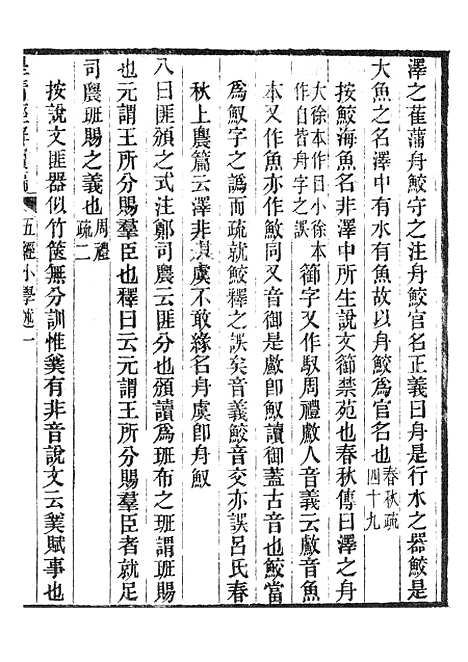 澤之萑蒲舟鮫守之注舟鮫官名正義曰舟是行水之器鮫是
大魚之名澤中有水有魚故以舟鮫爲官名也春秋疏四十九
按鮫海魚名非澤中所生說文篽禁苑也春秋傳曰澤之舟
篽字又作馭周禮䱷人音義云䱷音魚
大徐本作目小徐本
作自皆舟字之誤
本又作魚亦作鮫同又音御是䱷卽䱷讀御蓋古音也鮫當
爲䱷字之譌而疏就鮫釋之誤矣音義鮫音交亦誤呂氏春
秋上農篇云澤非舟虞不敢緣名舟虞卽舟䱷
八曰匪頒之式注鄭司農云匪分也頒讀爲班布之班謂班賜
也元謂王所分賜羣臣也釋曰云元謂王所分賜羣臣者就足
司農班賜之義也周禮疏二
按說文匪器似竹筐無分訓惟𤰈有非音說文云𤰈賦事也
五經小學述一